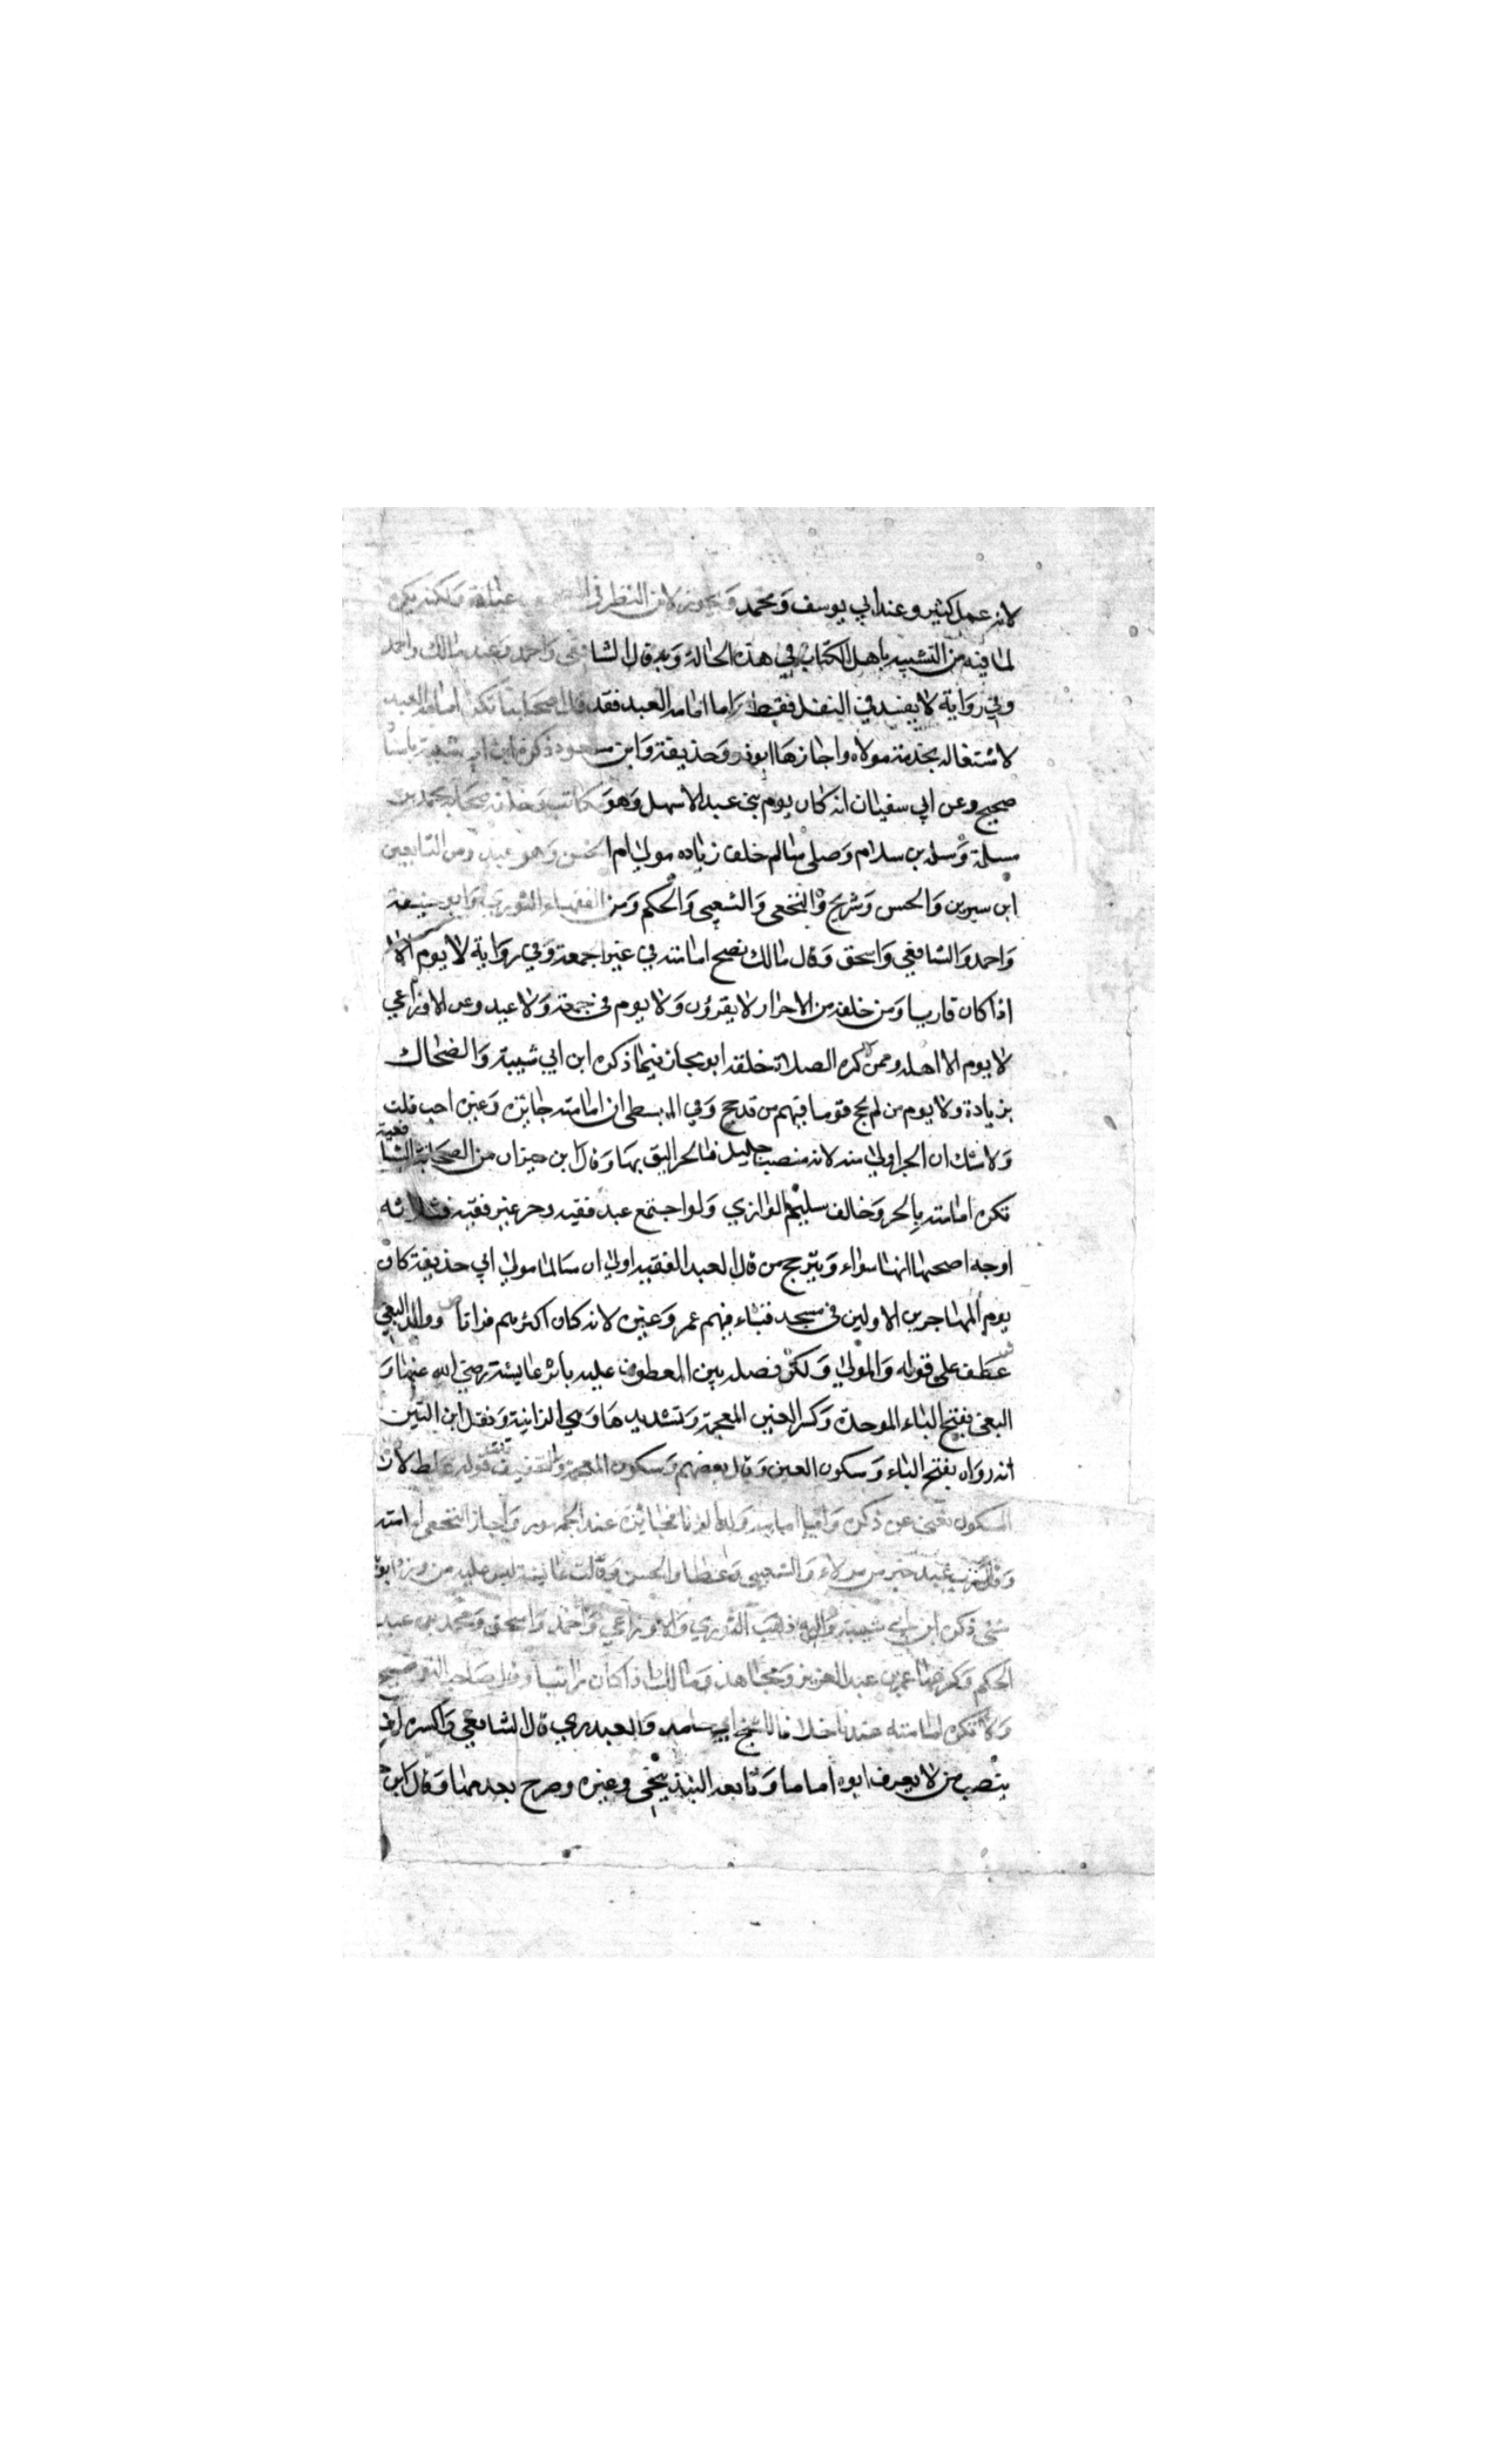 لانه عمل كثير وعند ابي يوسف ومحمد يجوز لان النظر في عبادة ولكنه يكره
لما فيه من التشبه باهل الكتاب في هذه الحالة وبه قال الشافعي واحمد وعند مالك واحمد
وفي رواية لا يفسد في النفل فقط واما امامة العبد فقد قال اصحابنا تكره امامة العبد
لاشتغاله بخدمة مولاه واجازها ابو ذر وحذيفة وابن مسعود ذكره ابن ابي شيبة باسناد
صحيح وعن ابي سفيان انه كان يوم بني عبد الاسهل وهو مكاتب وخلفه صحابة محمد بن
مسلمة وسلمة بن سلام وصلى سالم خلف زياده مولى ام الحسن وهو عبد ومن التابعين
ابن سيرين والحسن وشريح والنخعي والشعبي والحكم ومن الفقهاء الثوري وابو حنيفة
واحمد والشافعي واسحق وقال مالك تصح امامته في غير الجمعة وفي رواية لا يوم الا
اذا كان قاريا ومن خلفه من الاحرار لا يقرؤن ولا يوم في جمعة ولا عيد وعن الاوزاعي
لا يوم الا اهله وممن كره الصلاة خلفه ابو مجلز فيما ذكره ابن ابي شيبة والضحاك
بزيادة ولا يوم من لم يحج قوما فيهم من قد حج وفي المبسوط ان امامته جايزة وغيره احب قلت
ولا شك ان الحر اولى منه لانه منصب جليل فالحر اليق بها وقال ابن خيران من الصحابة الشافعية
تكره امامته بالحر وخالف سليم الرازي ولو اجتمع عبد فقيه وحر غير فقيه فثلاثه
اوجه اصحها انهما سواء ويترجح من قال العبد الفقيه اولى ان سالما مولى ابي حذيفة كان
يوم المهاجرين الاولين في مسجد قباء فيهم عمر وغيره لانه كان اكثرهم قرانا ص وولد البغي
ش عطف على قوله والمولى ولكن فصل بين المعطوف عليه باثر عايشة رضي الله عنها و
البغي بفتح الباء الموحدة وكسر الغين المعجمة وتشديدها وهي الزانية ونقل ابن التين
انه رواه بفتح الباء وسكون الغين وقال بعضهم وسكون المعجمة والتخفيف قلت قوله غلط لان
السكون يغني عن ذكره واما امامة ولد الزنا فجائزة عند الجمهور واجاز النخعي امامته
وقال رب عبد خير من مولاه والشعبي وعطا والحسن وقالت عايشة ليس عليه من وزر ابويه
شي ذكره ابن ابي شيبة واليه ذهب الثوري والاوزاعي واحمد واسحق ومحمد بن عبد
الحكم وكرهها عمر بن عبد العزيز ومجاهد ومالك اذا كان راتبا وقال صاحب التوضيح
ولا تكره امامته عندنا خلافا للشيخ ابي حامد والعبدري قال الشافعي واكره ان
ينصب من لا يعرف ابوه اماما وتابعه البندنيجي وغيره وصرح بعدمها وقال ابن